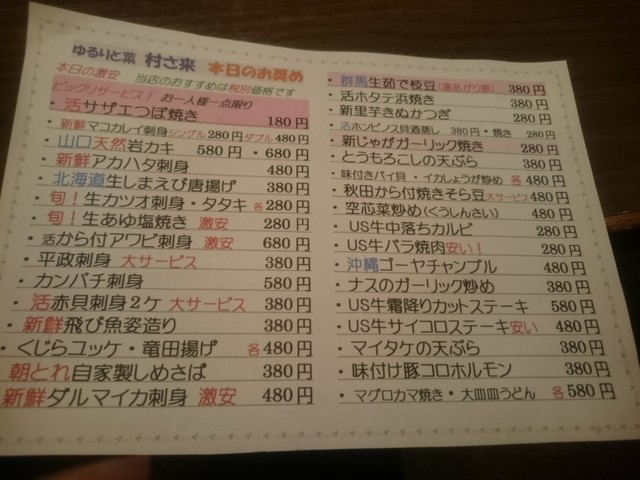 ゆるりと菜 村さ来 本日のお奨め
本日の激安 当店のおすすめは税別価格です
ビックリサービス！ お一人様一点限り
・活サザエつぼ焼き 180円
・新鮮マコカレイ刺身シングル280円ダブル480円
・山口天然岩カキ 580円・680円
・新鮮アカハタ刺身 480円
・北海道生しまえび唐揚げ 380円
・旬！生カツオ刺身・タタキ 各280円
・旬！生あゆ塩焼き 激安 280円
・活から付アワビ刺身 激安 680円
・平政刺身 大サービス 380円
・カンパチ刺身 580円
・活赤貝刺身2ケ 大サービス 380円
・新鮮飛び魚姿造り 380円
・くじらユッケ・竜田揚げ 各480円
朝とれ自家製しめさば 380円
新鮮ダルマイカ刺身 激安 480円
・群馬生茹で枝豆 380円
・活ホタテ浜焼き 380円
・新里芋きぬかつぎ 280円
・活ホンビノス貝酒蒸し 380円・焼き 280円
・新じゃがガーリック焼き 280円
・とうもろこしの天ぷら 380円
・味付きバイ貝・イカしょうが炒め 各480円
・秋田から付焼きそら豆大サービス480円
・空芯菜炒め(くうしんさい) 480円
・US牛中落ちカルビ 280円
・US牛バラ焼肉安い！ 280円
・沖縄ゴーヤチャンプル 480円
・ナスのガーリック炒め 380円
・US牛霜降りカットステーキ 580円
・US牛サイコロステーキ安い 480円
・マイタケの天ぷら 380円
・味付け豚コロホルモン 380円
・マグロカマ焼き・大皿皿うどん 各580円